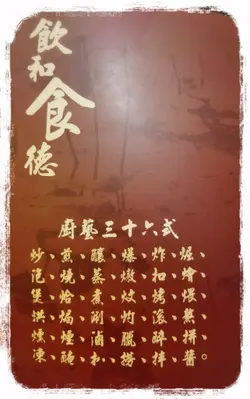 飲和食德
廚藝三十六式
炒、煎、釀、爆、炸、煀、
泡、燒、蒸、燉、扣、燴、
煲、烚、煮、炆、烤、煨、
烘、焗、涮、灼、滾、熬、
燻、煙、滷、臘、醉、拼、
凍、醃、扒、撈、拌、醬。